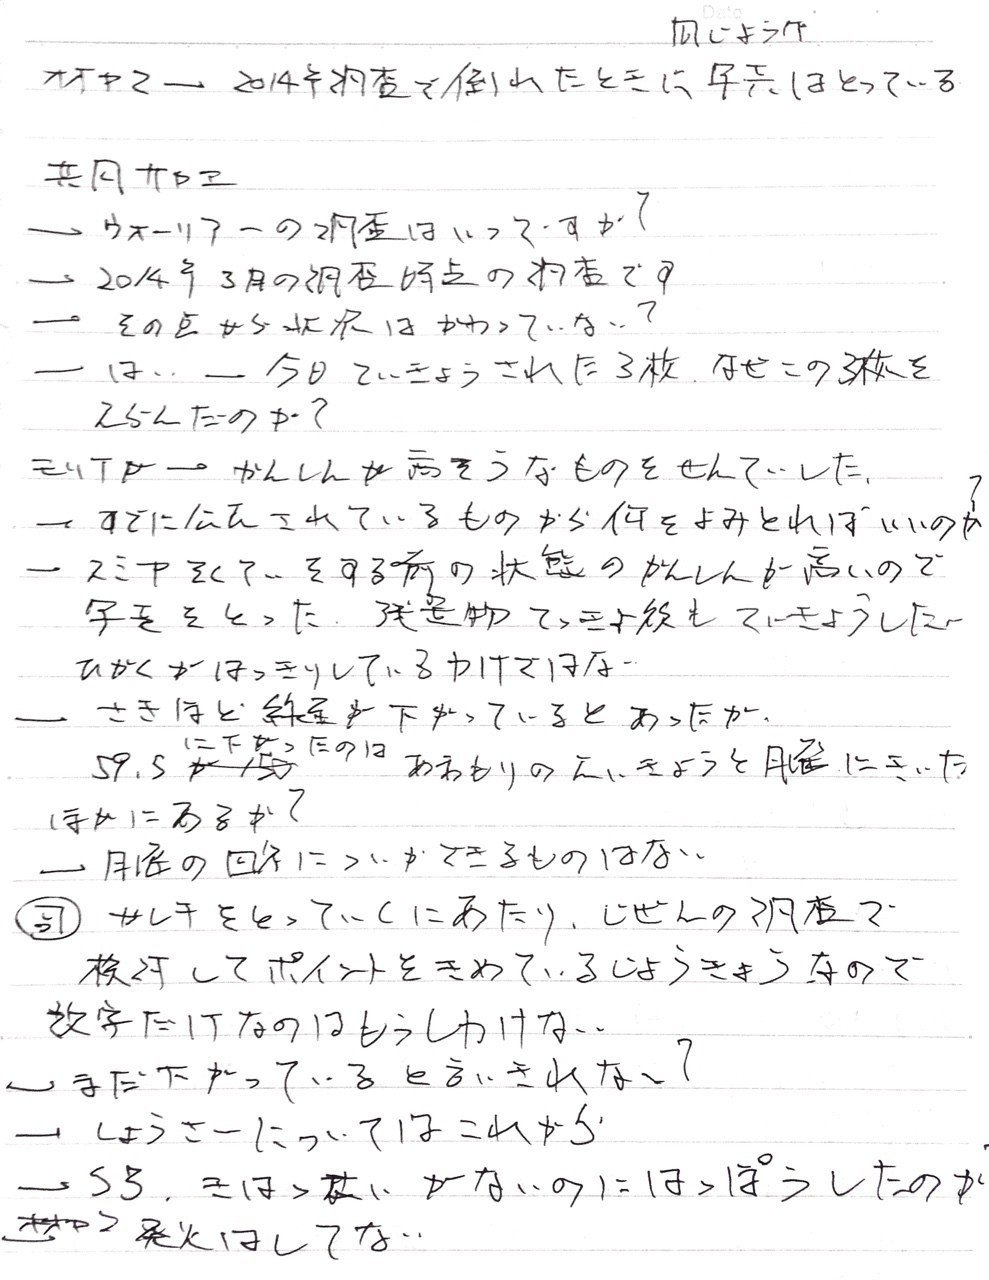 Data
同じような
オオヤマ → 2014年調査で倒れたときに写真はとっている
共同 サワエ
→ ウォーリアーの調査はいつですか?
→ 2014年3月の調査時点の調査です
→ その点から状況はかわっていない?
→ はい → 今日ていきょうされた3枚、なぜこの3枚を
えらんだのか?
モリTが → かんしんが高そうなものをせんていした、
→ すでに公表されているものから何をよみとればいいのか?
→ スミヤ そくていをする前の状態のかんしんが高いので
写真をとった 残置物てっきょ後もていきょうした
ひかくがはっきりしているわけではない
→ さきほど 線量が下がっているとあったが、
59.5 に下がったのは あまもりのえいきょうと月曜にきいた
ほかにあるか?
→ 月曜の回答についかできるものはない
サレキをとっていくにあたり、じぜんの調査で
検討してポイントをきめているじょうきょうなので
数字だけなのはもうしわけない
→ まだ下がっていると言いきれない?
→ しょうさいについてはこれから
→ 53、きはつせいがないのにはっぽうしたのか
発火はしてない